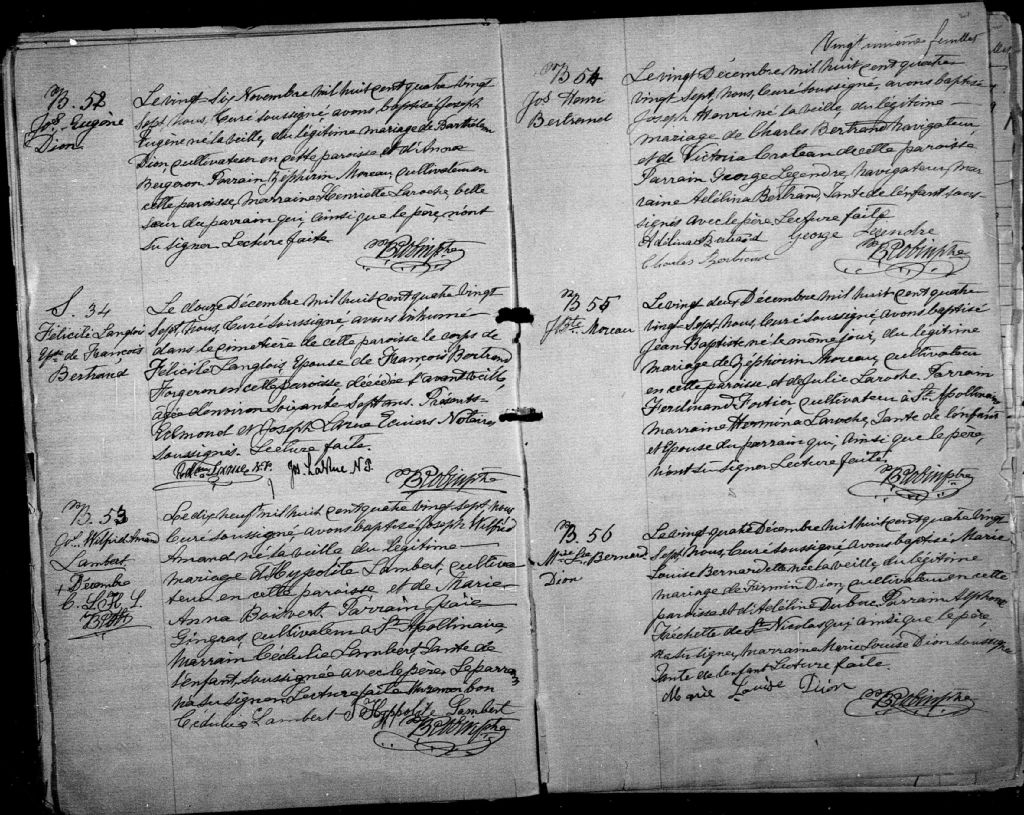 B. 52
Jos. Eugène
Dion
Le vingt six Novembre mil huit cent quatre vingt
Sept, Nous, Curé soussigné, avons baptisé Joseph
Eugène né la veille, du légitime mariage de Barthélemi
Dion, cultivateur en cette paroisse et d'Anna
Bergeron. Parrain Zéphirin Moreau, cultivateur en
cette paroisse, marraine Henriette Laroche, belle
sœur du parrain qui, ainsi que le père, n'ont
su signer. Lecture faite.
S. 34
Félicité Langlois
Épse de François
Bertrand
Le douze Décembre mil huit cent quatre vingt
Sept, Nous, Curé soussigné, avons inhumé
dans le cimetière de cette paroisse le corps de
Félicité Langlois, Épouse de François Bertrand
Forgeron en cette paroisse, décédée l'avant veille,
agée d'environ Soixante Sept ans. Présents
Edmond et Joseph Larue Écuiers Notaires
soussignés. Lecture faite.
Jos. LaRue N.P.
B. 53
Jos. Wilfrid Amand
Lambert
Décembre
Le dix neuf mil huit cent quatre vingt sept, Nous
Curé soussigné avons baptisé Joseph Wilfrid
Amand né la veille du légitime
mariage d'Hypolite Lambert, cultiva-
teur en cette paroisse et de Marie
Anna Boisvert. Parrain
Gingras, cultivateur à St Apollinaire,
Marraine Cédulie Lambert Tante de
l'enfant soussignée avec le père. Le parrain
n'a su signer. Lecture faite. bon
Cédulie Lambert Hyppolite Lambert
Vingt unième feuillet
B 54
Jos Henri
Bertrand
Le vingt Décembre mil huit cent quatre
vingt Sept, Nous, Curé soussigné, avons baptisé
Joseph Henri né la veille, du légitime
mariage de Charles Bertrand Navigateur
et de Victoria Croteau de cette paroisse
Parrain George Legendre, Navigateur, mar
raine Adélina Bertrand, Tante de l'enfant sous-
signés avec le père. Lecture faite
Adélina Bertrand George Legendre
Charles Bertrand
B 55
J. Bte. Moreau
Le vingt deux Décembre mil huit cent quatre
vingt Sept, Nous, Curé soussigné avons baptisé
Jean Baptiste né le même jour, du légitime
mariage de Zéphirin Moreau, cultivateur
en cette paroisse et de Julie Laroche. Parrain
Ferdinand Fortier cultivateur à St Apollinaire
Marraine Hermina Laroche, Tante de l'enfant
et Épouse du parrain qui, ainsi que le père,
n'ont su signer. Lecture faite.
B. 56
Mie Le Bernard
Dion
Le vingt quatre Décembre mil huit cent quatre vingt
Sept, Nous, Curé soussigné avons baptisé, Marie
Louise Bernardette née la veille, du légitime
mariage de Firmin Dion, cultivateur en cette
paroisse et d'Adéline Dubuc. Parrain Alphonse
Fréchette de St Nicolas qui, ainsi que le père,
n'a su signer, marraine Marie Louise Dion soussignée
Tante de l'enfant. Lecture faite.
Marie Louise Dion